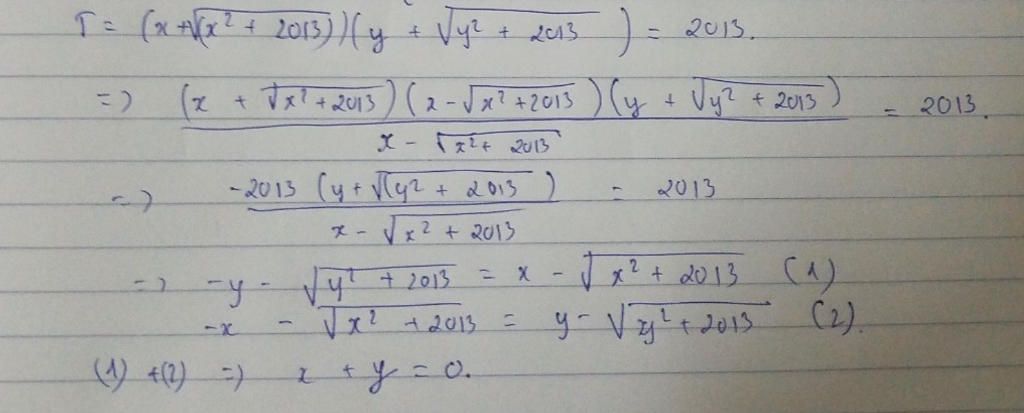 T = (x+√(x² + 2013))(y + √y² + 2013) = 2013.
=> (x + √x²+2013)(x-√x²+2013)(y + √y² + 2013) / x - √x²+ 2013 = 2013.
=> -2013 (y+√(y² + 2013) / x - √x² + 2013 = 2013
=> -y - √y² + 2013 = x - √x² + 2013 (1)
-x - √x² + 2013 = y - √y² + 2013 (2).
(1) +(2) => x + y = 0.